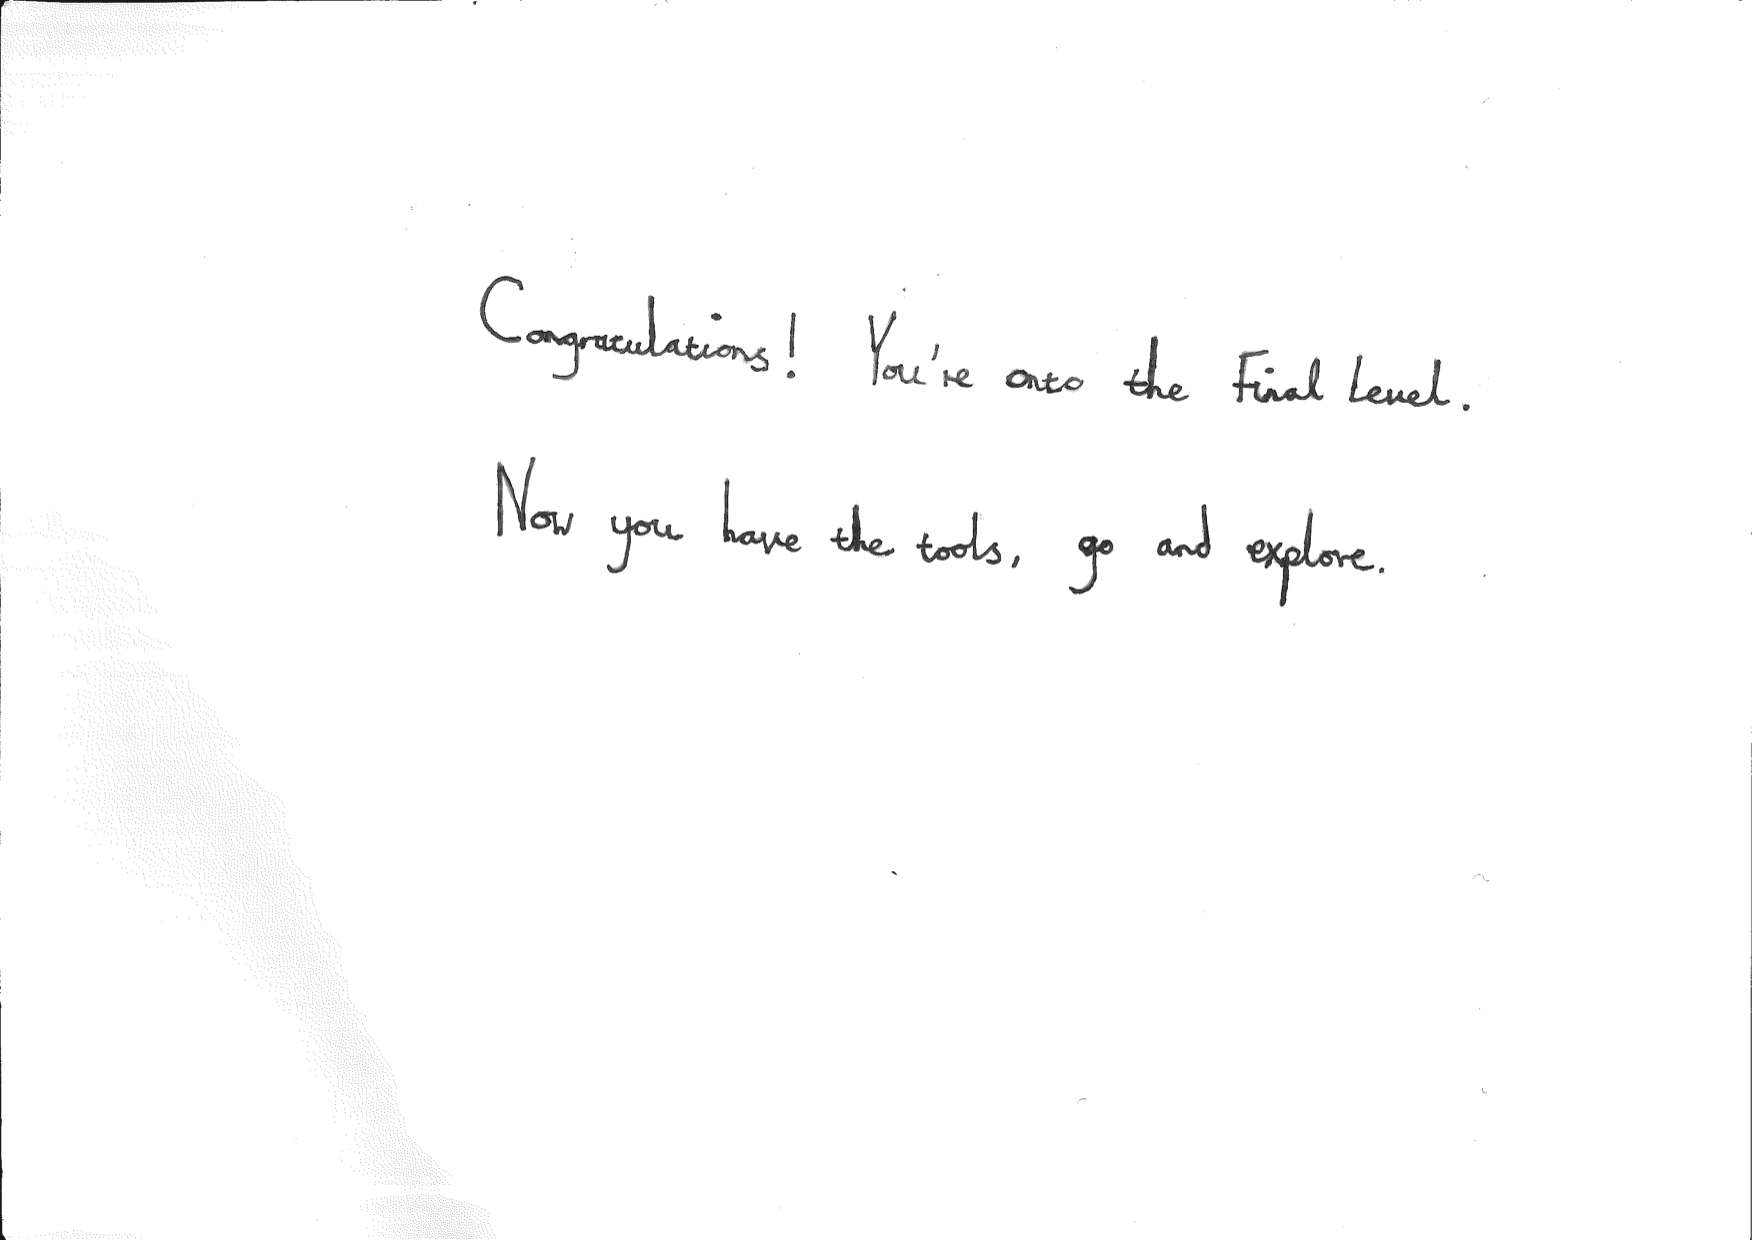 Congratulations! You're onto the Final Level.
Now you have the tools, go and explore.